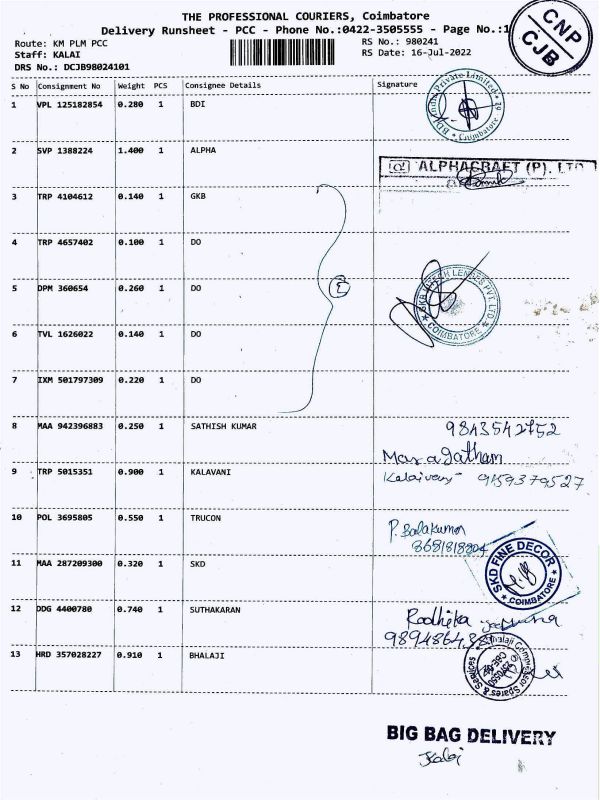 THE PROFESSIONAL COURIERS, Coimbatore
Delivery Runsheet - PCC - Phone No.:0422-3505555 - Page No.:1
Route: KM PLM PCC
RS No.: 980241
Staff: KALAI
RS Date: 16-Jul-2022
DRS No.: DCJB98024101
CNP
CJB
S No Consignment No Weight PCS Consignee Details Signature
1 VPL 125182854 0.280 1 BDI
BDI India Private Limited
Coimbatore
2 SVP 1388224 1.400 1 ALPHA
ALPHACRAFT (P). LTD
3 TRP 4104612 0.140 1 GKB
4 TRP 4657402 0.100 1 DO
5 DPM 360654 0.260 1 DO
COIMBATORE
6 TVL 1626022 0.140 1 DO
7 IXM 501797309 0.220 1 DO
8 MAA 942396883 0.250 1 SATHISH KUMAR
9843542752
Maragatham
9 TRP 5015351 0.900 1 KALAVANI
Kalaivani 9159379527
10 POL 3695805 0.550 1 TRUCON
P. Balakumar
8681818804
11 MAA 287209300 0.320 1 SKD
SKD FINE DECOR
COIMBATORE
12 DDG 4400780 0.740 1 SUTHAKARAN
Radhika
13 HRD 357028227 0.910 1 BHALAJI
BIG BAG DELIVERY
Kalai